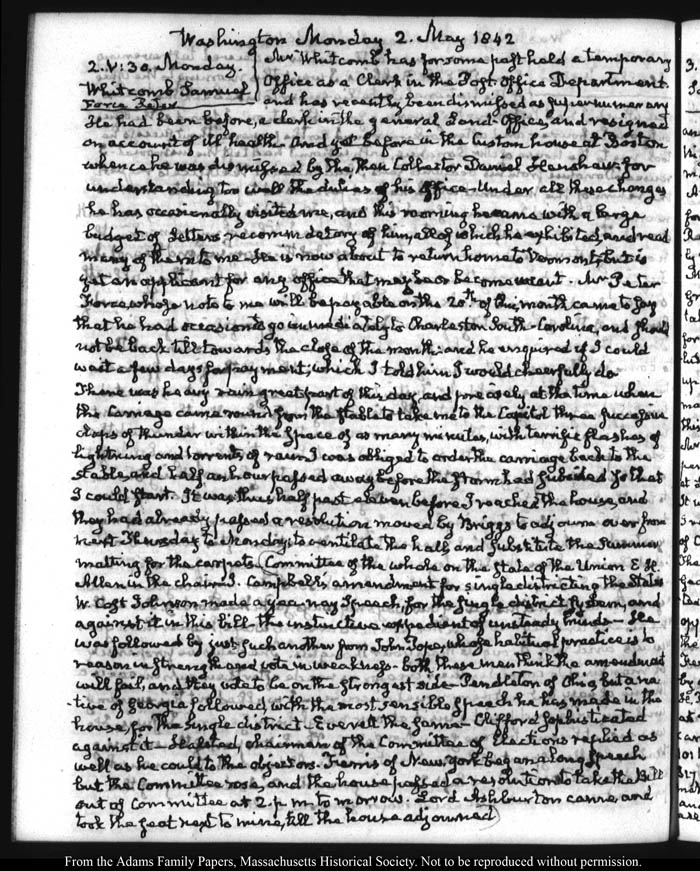 Washington Monday 2. May 1842
2. V:30. Monday.
Whitcomb Samuel
Force Peter
Mr Whitcomb has for some past held a temporary
Office as a Clerk in the Post-Office Department
and has recently been dismissed as supernumerary
He had been before, a clerk in the general Land-Office, and resigned
on account of ill health. And yet before in the Custom house at Boston
whence he was dismissed by the then Collector Daniel Henshaw, for
understanding too well the duties of his Office. Under all these changes
he has occasionally visited me, and this morning he came with a large
budget of Letters recommendatory of him, all of which he exhibited, and read
many of them to me. He is now about to return home to Vermont, but is
yet an applicant for any office that may be or become vacant. Mr Peter
Force, whose note to me will be payable on the 20th of this month came to say
that he had occasion to go immediately to Charleston South-Carolina, and should
not be back till towards the close of this month: and he enquired if I could
wait a few days for payment; which I told him I would cheerfully do
There was heavy rain great part of this day, and precisely at the time when
the Carriage came round from the stable to take me to the Capitol three successive
claps of thunder within the space of as many minutes, with terrific flashes of
lightning and torrents of rain. I was obliged to order the carriage back to the
stable, and half an hour passed away before the storm had subsided so that
I could start. It was thus half past eleven before I reached the house, and
they had already passed a resolution moved by Briggs to adjourn over from
next Thursday to Monday; to ventilate the hall, and substitute the Summer
matting for the carpets. Committee of the whole on the state of the Union E H.
Allen in the chair. J. Campbell's amendment for single districting the States
W. Cost Johnson made a yea-nay speech, for the single district system, and
against it in this bill. the instinctive expedient of unsteady minds. He
was followed by just such another from John Pope, whose habitual practice is to
reason in strength and vote in weakness. both these men think the amendment
will fail, and they vote to be on the strongest side. Pendleton of Ohio, but a na-
tive of Georgia followed, with the most sensible speech he has made in the
house, for the single district. Everett the same. Clifford sophisticated
against it. Halsted, chairman of the Committee of Elections replied as
well as he could to the objectors. Ferris of New-York began a long speech
but the Committee rose, and the house passed a resolution to take the Bill
out of Committee at 2. p m to morrow. Lord Ashburton came, and
took the seat next to mine, till the house adjourned
From the Adams Family Papers, Massachusetts Historical Society. Not to be reproduced without permission.